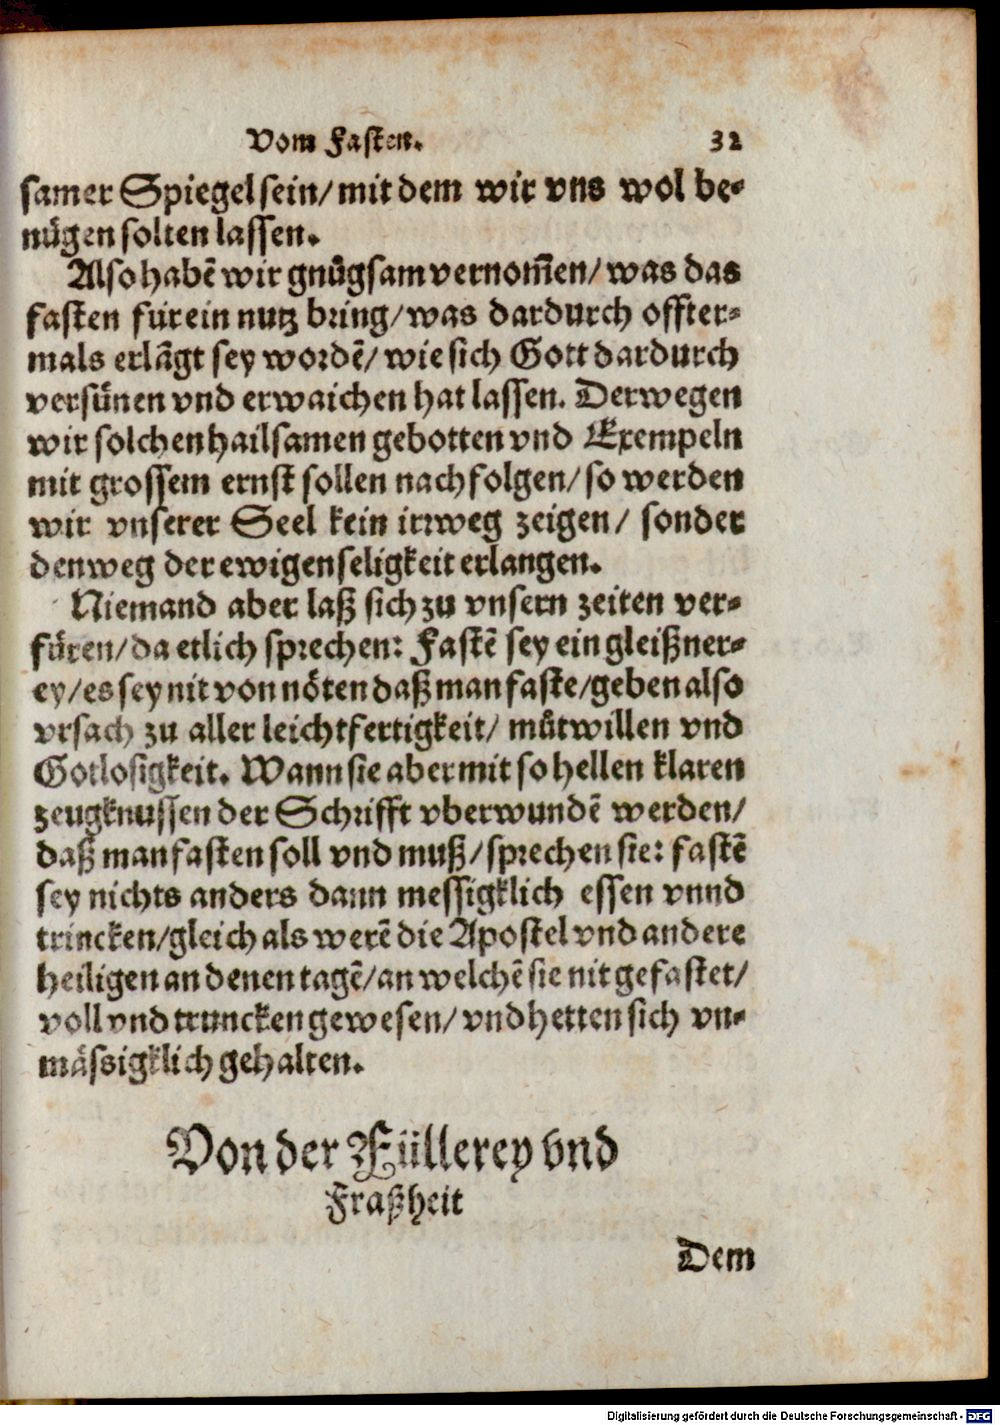 Vom Fasten. 32
samer Spiegel sein/ mit dem wir vns wol be-
nuͤgen solten lassen.
Also habē wir gnuͤgsam vernom̄en/ was das
fasten für ein nutz bring/ was dardurch offter-
mals erlāgt sey wordē/ wie sich Gott dardurch
versuͤnen vnd erwaichen hat lassen. Derwegen
wir solchen hailsamen gebotten vnd Exempeln
mit grossem ernst sollen nachfolgen/ so werden
wir vnserer Seel kein irrweg zeigen/ sonder
den weg der ewigen seligkeit erlangen.
Niemand aber laß sich zu vnsern zeiten ver-
fuͤren/ da etlich sprechen: Fastē sey ein gleißner-
ey/ es sey nit von noͤten daß man faste/ geben also
vrsach zu aller leichtfertigkeit/ muͤtwillen vnd
Gotlosigkeit. Wann sie aber mit so hellen klaren
zeugknussen der Schrifft vberwundē werden/
daß man fasten soll vnd muß/ sprechen sie: fastē
sey nichts anders dann messigklich essen vnnd
trincken/ gleich als werē die Apostel vnd andere
heiligen an denen tagē/ an welchē sie nit gefastet/
voll vnd truncken gewesen/ vnd hetten sich vn-
maͤssigklich gehalten.
Von der Füllerey vnd
Fraßheit
Dem
Digitalisierung gefördert durch die Deutsche Forschungsgemeinschaft - DFG